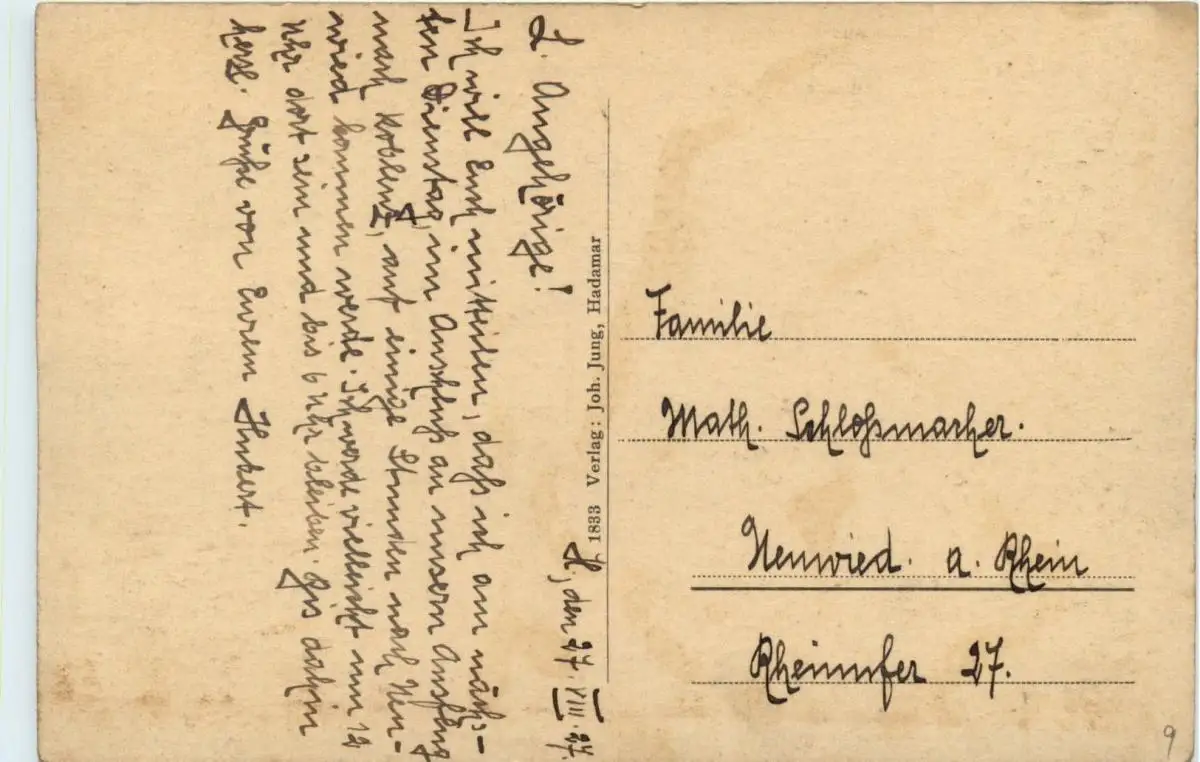 L. Angehörige!
Ich will Euch mitteilen, daß ich am näch-
sten Dienstag, im Anschluß an unsern Ausflug
nach Koblenz, auf einige Stunden nach Neu-
wied kommen werde. Ich werde vielleicht um 12
Uhr dort sein und bis 6 Uhr bleiben. Bis dahin
herzl. Grüße von Eurem
, den 27. VIII. 27.
1833 Verlag: Joh. Jung, Hadamar
Familie
Math. Schloßmacher.
Neuwied. a. Rhein
Rheinufer 27.
9